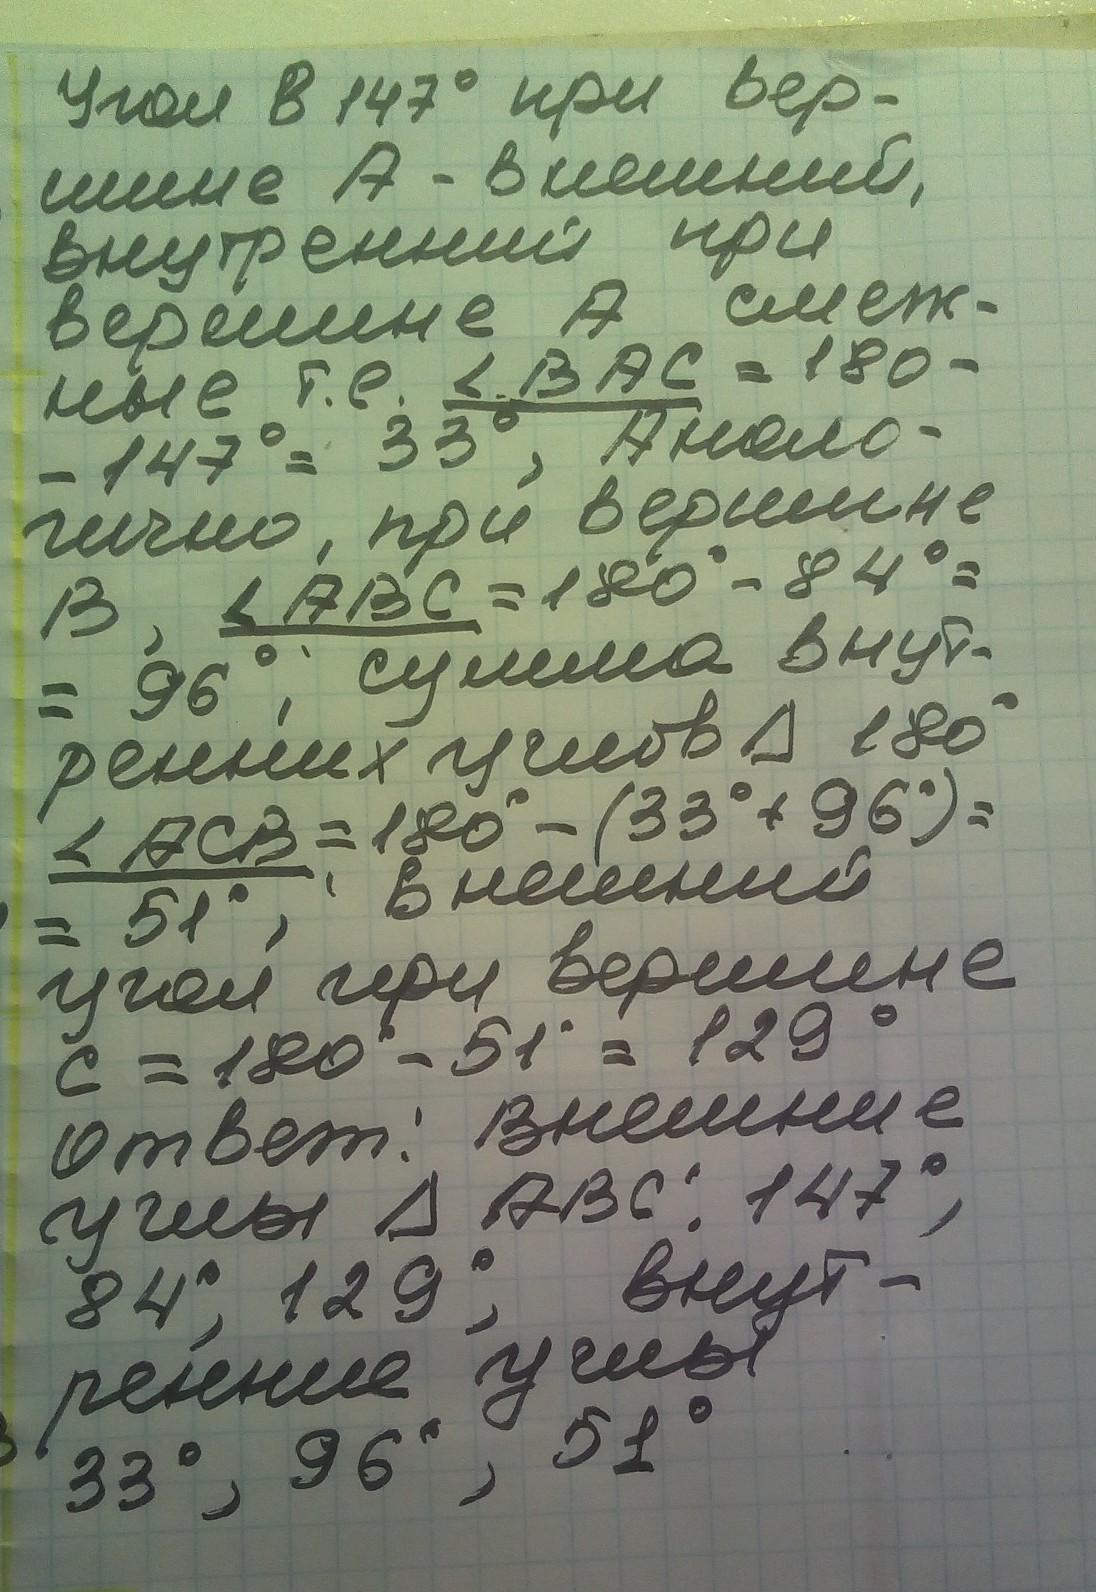 Угол в 147° при вер-
шине А - внешний,
внутренний при
вершине А смеж-
ные т.е. ∠BAC = 180-
- 147° = 33°, Анало-
гично, при вершине
В, ∠ABC = 180° - 84° =
= 96°, сумма внут-
ренних углов Δ 180°
∠ACB = 180° - (33° + 96°) =
= 51°, внешний
угол при вершине
С = 180° - 51° = 129°
Ответ: Внешние
углы Δ ABC: 147°,
84°, 129°, внут-
ренние углы
33°, 96°, 51°